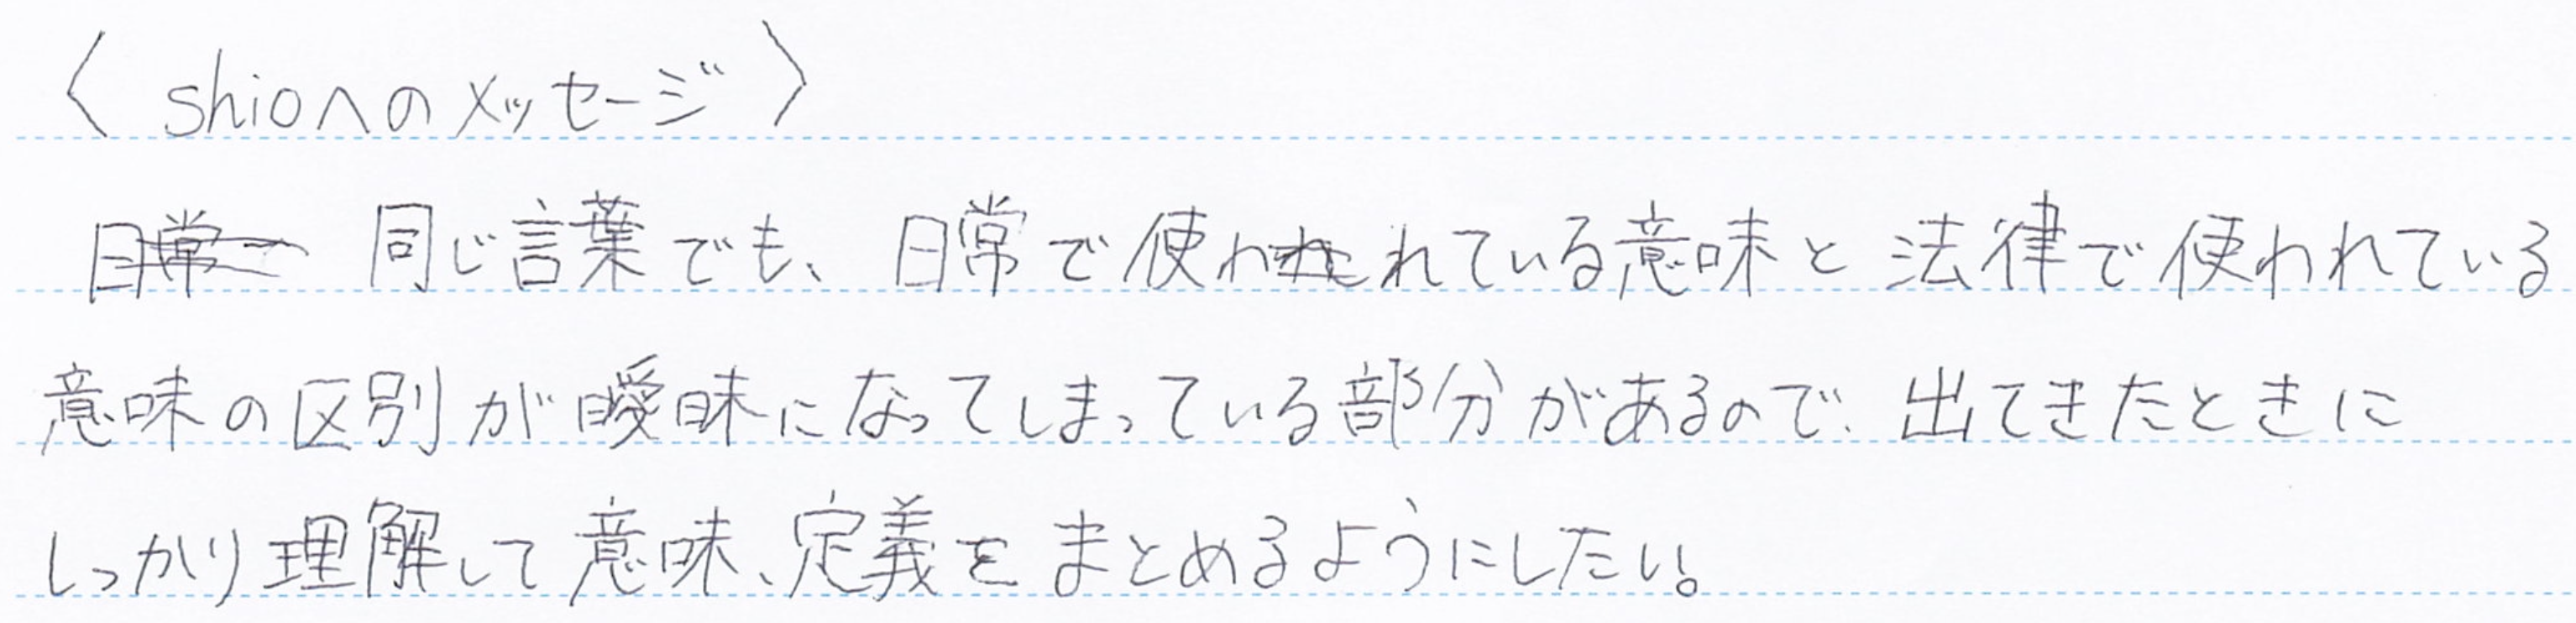 〈shioへのメッセージ〉
同じ言葉でも、日常で使われている意味と法律で使われている
意味の区別が曖昧になってしまっている部分があるので、出てきたときに
しっかり理解して意味、定義をまとめるようにしたい。